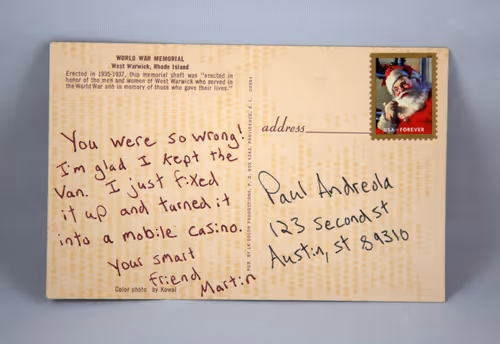 WORLD WAR MEMORIAL
West Warwick, Rhode Island
Erected in 1935-1937, this memorial shaft was "erected in
honor of the men and women of West Warwick who served in
the World War and in memory of those who gave their lives."
You were so wrong!
I'm glad I kept the
Van. I just fixed
it up and turned it
into a mobile casino.
Your smart
friend
Martin
Color photo by Kowal
address
USA FOREVER
Paul Andreola
123 second st
Austin, st 89310